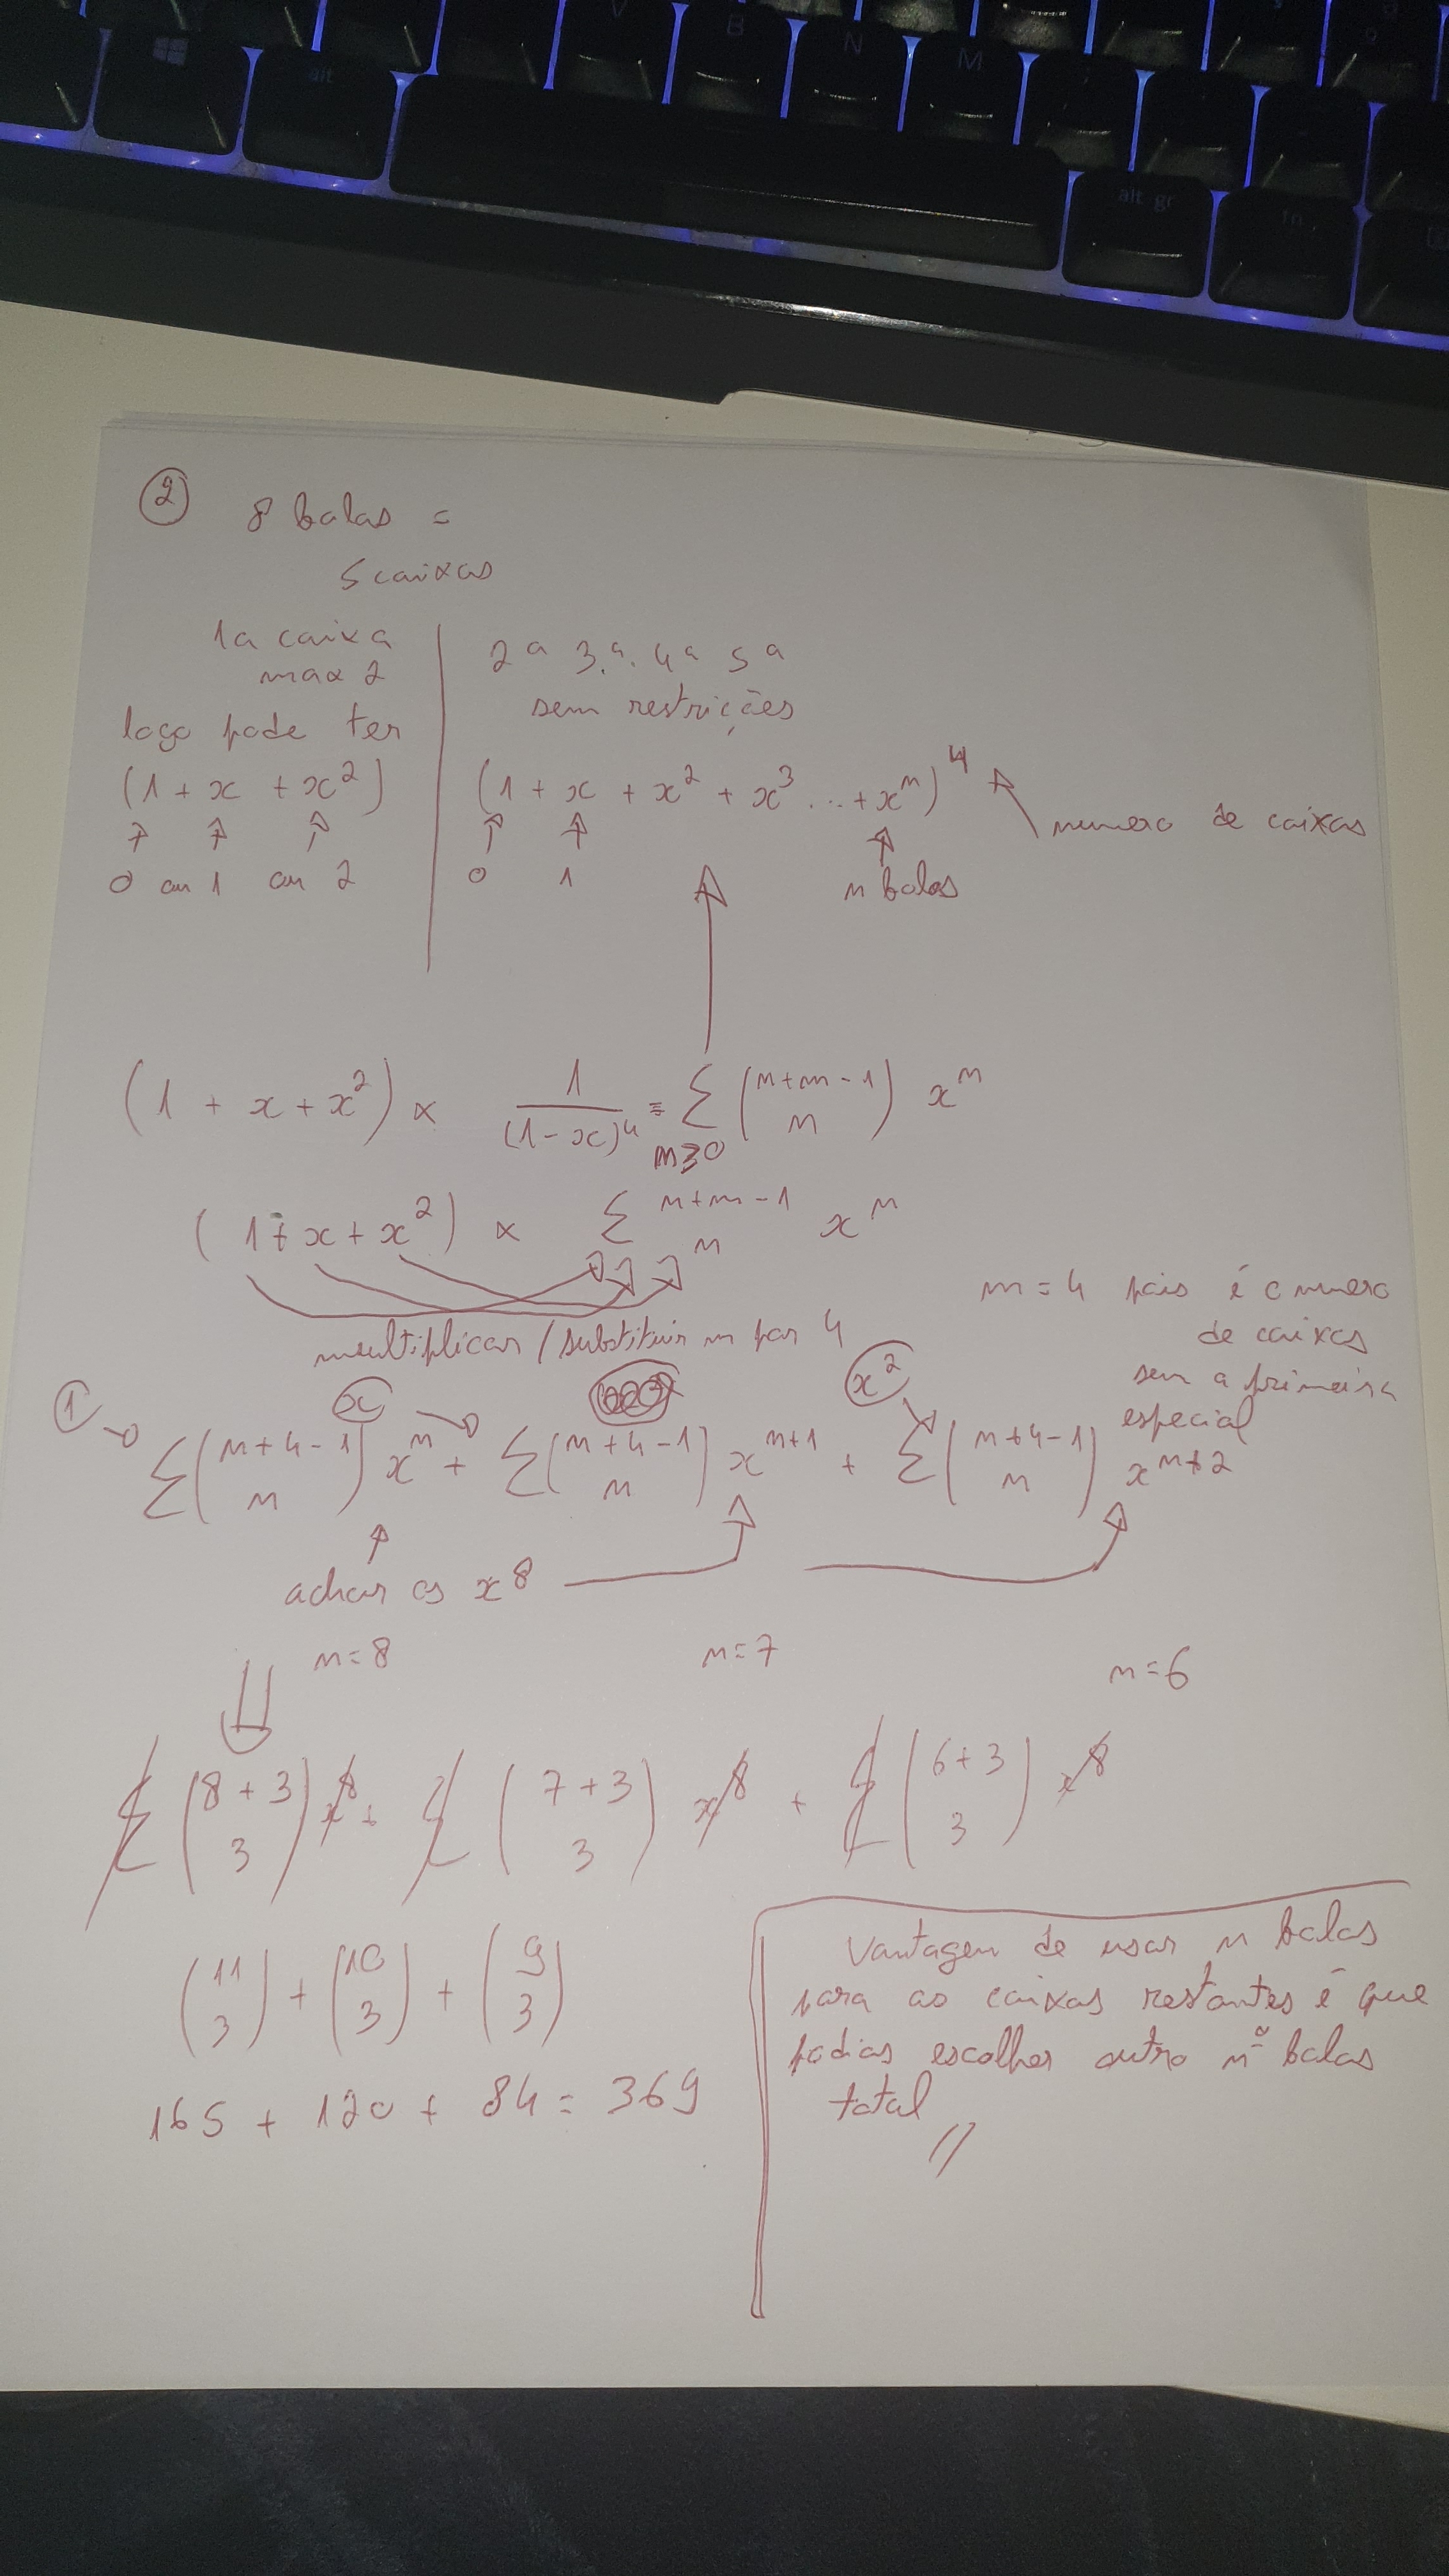 V B N M
alt
alt gr fn
② 8 balas =
5 caixas
1a caixa
max 2
logo pode ter
(1 + x + x²)
0 ou 1 ou 2
2ª 3.ª. 4ª 5ª
sem restrições
(1 + x + x² + x³ ... + xⁿ)⁴
numero de caixas
0 1 n balas
(1 + x + x²) × 1/(1-x)⁴ = Σ n≥0 (n+m-1 n) xⁿ
(1 + x + x²) × Σ n+m-1 n xⁿ
multiplicar / substituir m por 4
m = 4 pois é o numero
de caixas
sem a primeira
especial
① x x²
Σ(n+4-1 n) xⁿ + Σ(n+4-1 n) xⁿ⁺¹ + Σ(n+4-1 n) xⁿ⁺²
achar os x⁸
n=8 n=7 n=6
Σ(8+3 3) x⁸ + Σ(7+3 3) x⁸ + Σ(6+3 3) x⁸
(11 3) + (10 3) + (9 3)
165 + 120 + 84 = 369
Vantagem de usar n balas
para as caixas restantes é que
podias escolher outro nº balas
total //